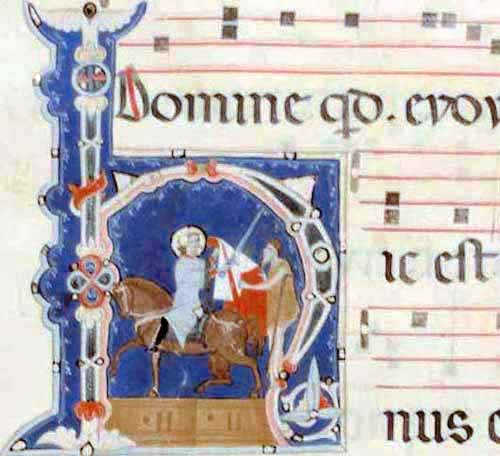 Domine qd. evov
Hic est
nus e